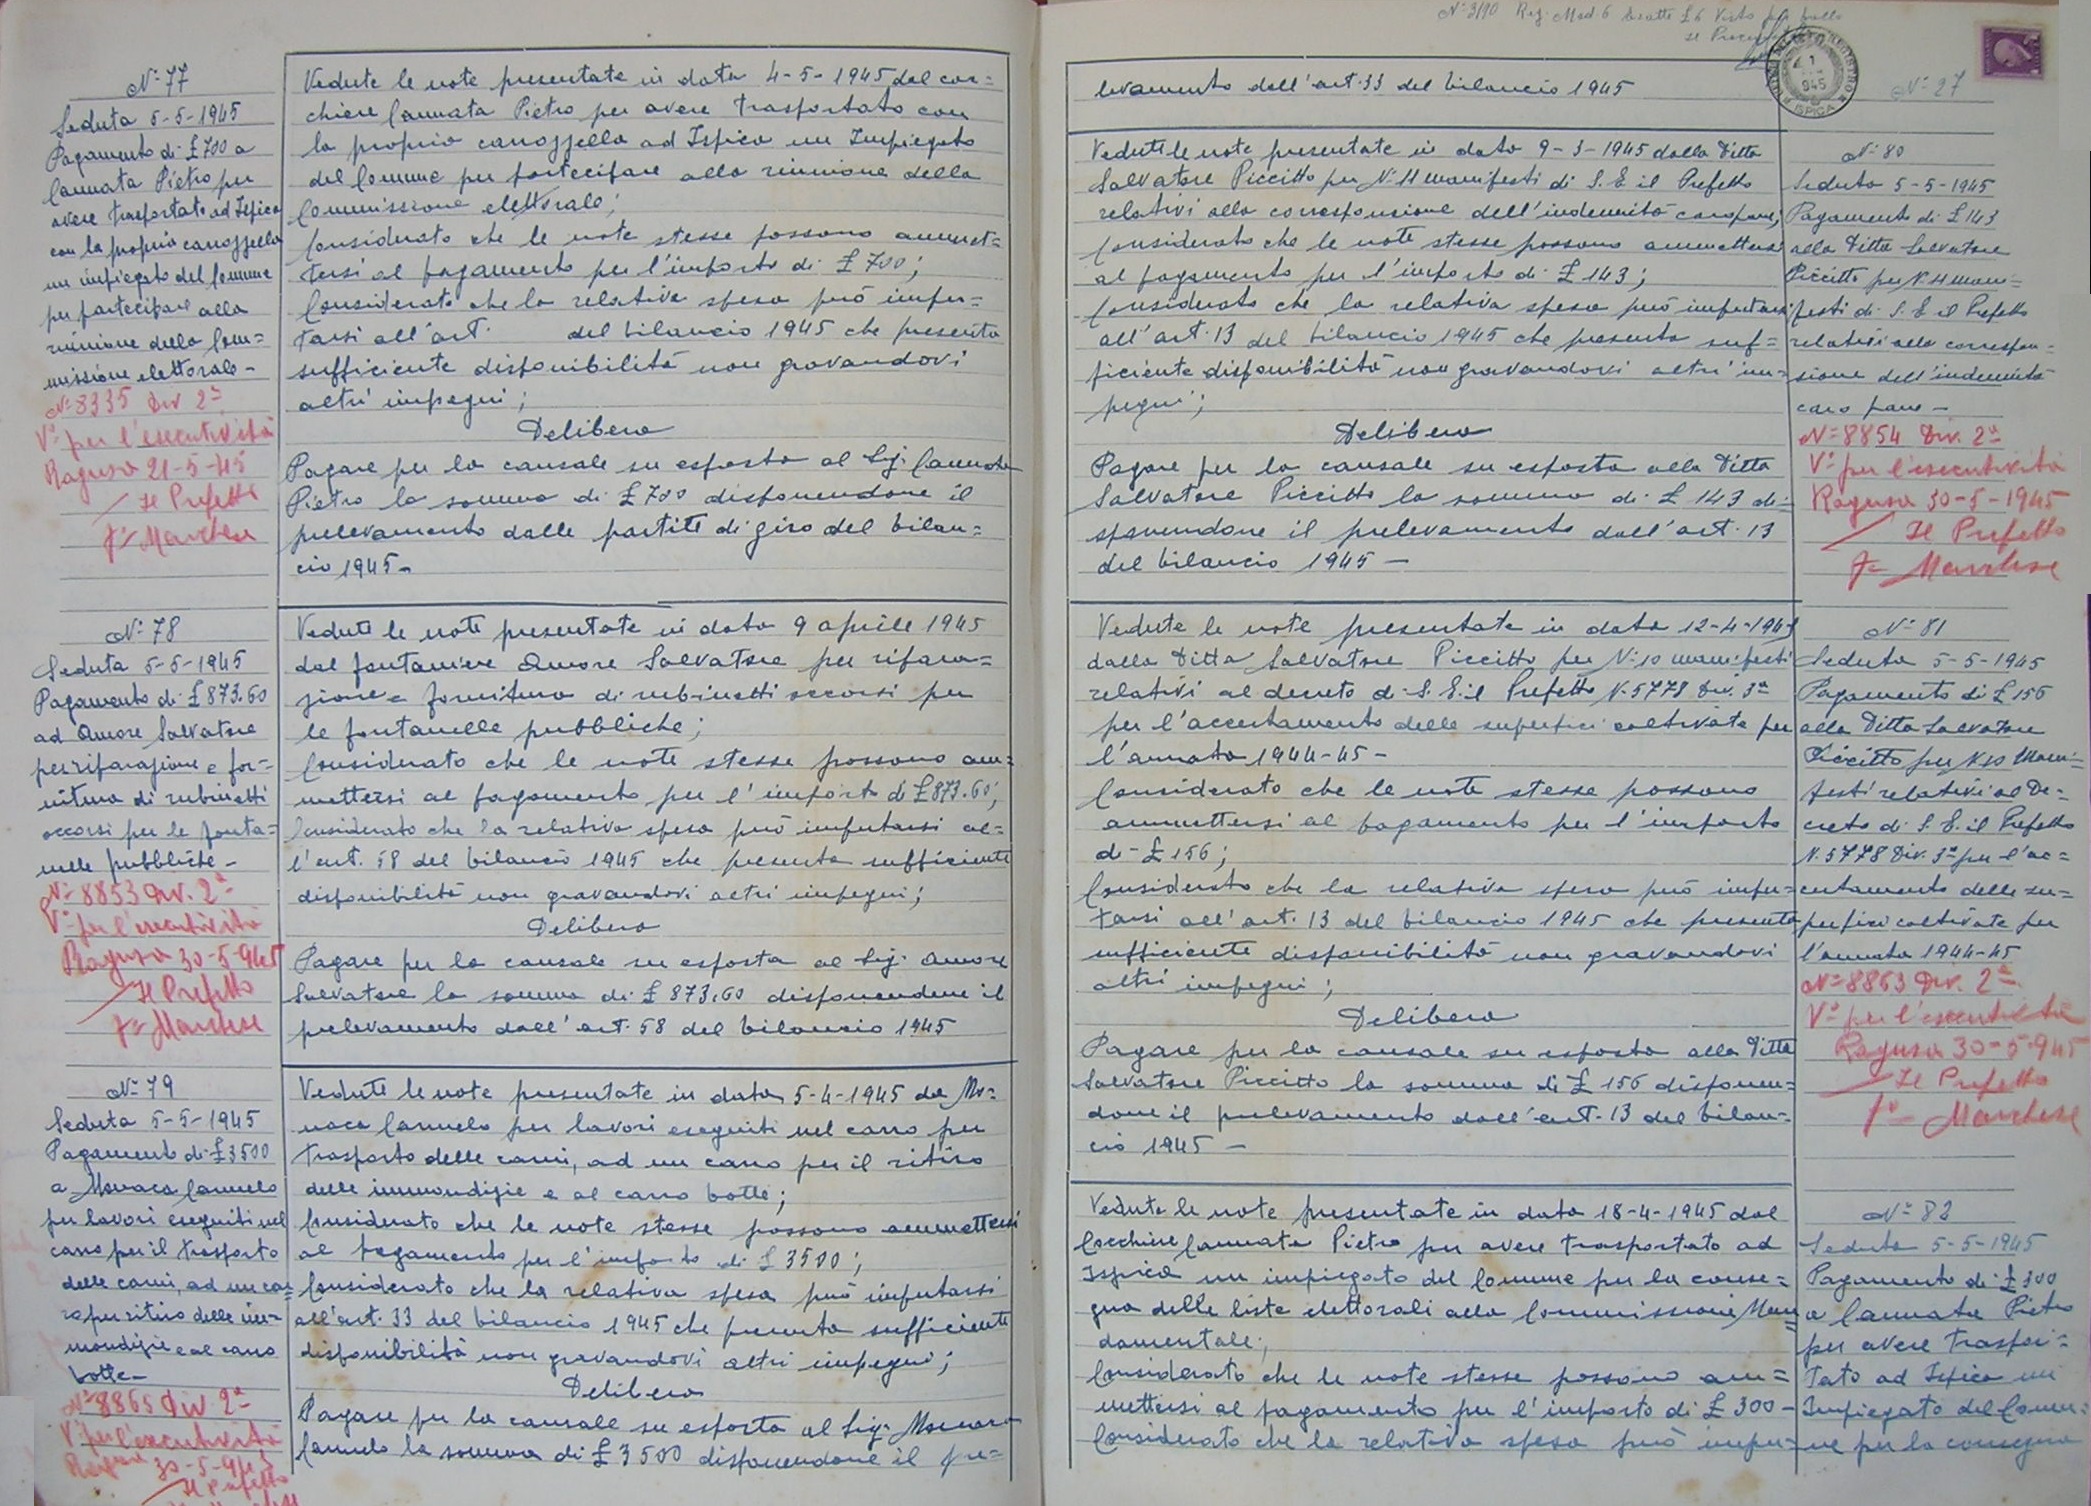 N° 77
Seduta 5-5-1945
Pagamento di £ 700 a
Cannata Pietro per
avere trasportato ad Ispica
con la propria carozzella
un impiegato del Comune
per partecipare alla
riunione della Com=
missione elettorale -
N° 8335 Div 2ª
V° per l'esecutività
Ragusa 21-5-45
Il Prefetto
F° Marchese
Vedute le note presentate in data 4-5-1945 dal coc=
chiere Cannata Pietro per avere trasportato con
la propria carozzella ad Ispica un Impiegato
del Comune per partecipare alla riunione della
Commissione elettorale;
Considerato che le note stesse possono ammet=
tersi al pagamento per l'importo di £ 700;
Considerato che la relativa spesa può impu=
tarsi all'art. del bilancio 1945 che presenta
sufficiente disponibilità non gravandovi
altri impegni;
Delibera
Pagare per la causale su esposta al Sig. Cannata
Pietro la somma di £ 700 disponendone il
prelevamento dalle partite di giro del bilan=
cio 1945-
N° 78
Seduta 5-5-1945
Pagamento di £ 873.60
ad Amore Salvatore
per riparazione e for=
nitura di rubinetti
occorsi per le fonta=
nelle pubbliche -
N° 8853 Div. 2ª
V° per l'esecutività
Ragusa 30-5-945
Il Prefetto
F° Marchese
Vedute le note presentate in data 9 aprile 1945
dal fontaniere Amore Salvatore per ripara=
zione e fornitura di rubinetti occorsi per
le fontanelle pubbliche;
Considerato che le note stesse possono am=
mettersi al pagamento per l'importo di £ 873.60;
Considerato che la relativa spesa può imputarsi al=
l'art. 58 del bilancio 1945 che presenta sufficiente
disponibilità non gravandovi altri impegni;
Delibera
Pagare per la causale su esposta al Sig. Amore
Salvatore la somma di £ 873.60 disponendone il
prelevamento dall'art. 58 del bilancio 1945
N° 79
Seduta 5-5-1945
Pagamento di £ 3500
a Monaca Carmelo
per lavori eseguiti nel
carro per il trasporto
delle carni, ad un car=
ro per ritiro delle im=
mondizie e al carro
botte-
N° 8865 Div 2ª
V° per l'esecutività
Ragusa 30-5-945
Il Prefetto
Vedute le note presentate in data 5-4-1945 da Mo=
naca Carmelo per lavori eseguiti nel carro per
trasporto delle carni, ad un carro per il ritiro
delle immondizie e al carro botte;
Considerato che le note stesse possono ammettersi
al pagamento per l'importo di £ 3500;
Considerato che la relativa spesa può imputarsi
all'art. 33 del bilancio 1945 che presenta sufficiente
disponibilità non gravandovi altri impegni;
Delibera
Pagare per la causale su esposta al Sig. Monaca
Carmelo la somma di £ 3500 disponendone il pre=
N° 3190 Reg. Mod. 6 Esatte £ 6 Visto per bollo
Il
ISPICA
1945
N° 27
levamento dall'art. 33 del bilancio 1945
Vedute le note presentate in data 9-3-1945 dalla Ditta
Salvatore Piccitto per N. 11 manifesti di S. E. il Prefetto
relativi alla corresponsione dell'indennità caropane;
Considerato che le note stesse possono ammettersi
al pagamento per l'importo di £ 143;
Considerato che la relativa spesa può imputarsi
all'art. 13 del bilancio 1945 che presenta suf=
ficiente disponibilità non gravandovi altri im=
pegni;
Delibera
Pagare per la causale su esposta alla Ditta
Salvatore Piccitto la somma di £ 143 di=
sponendone il prelevamento dall'art. 13
del bilancio 1945 -
N° 80
Seduta 5-5-1945
Pagamento di £ 143
alla Ditta Salvatore
Piccitto per N. 11 mani=
festi di S. E il Prefetto
relativi alla correspon=
sione dell'indennità
caro pane -
N° 8854 Div. 2ª
V° per l'esecutività
Ragusa 30-5-1945
Il Prefetto
F° Marchese
Vedute le note presentate in data 12-4-1945
dalla Ditta Salvatore Piccitto per N. 10 manifesti
relativi al decreto di S. E. il Prefetto N. 5778 Div. 3ª
per l'accertamento delle superfici coltivate per
l'annata 1944-45-
Considerato che le note stesse possono
ammettersi al pagamento per l'importo
di £ 156;
Considerato che la relativa spesa può impu=
tarsi all'art. 13 del bilancio 1945 che presenta
sufficiente disponibilità non gravandovi
altri impegni;
Delibera
Pagare per la causale su esposta alla Ditta
Salvatore Piccitto la somma di £ 156 disponen=
done il prelevamento dall'art. 13 del bilan=
cio 1945 -
N° 81
Seduta 5-5-1945
Pagamento di £ 156
alla Ditta Salvatore
Piccitto per N. 10 Mani=
festi relativi al De=
creto di S. E. il Prefetto
N. 5778 Div. 3ª per l'ac=
certamento delle su=
perfici coltivate per
l'annata 1944-45
N° 8863 Div. 2ª
V° per l'esecutività
Ragusa 30-5-945
Il Prefetto
F° Marchese
Vedute le note presentate in data 18-4-1945 dal
Cocchiere Cannata Pietro per avere trasportato ad
Ispica un impiegato del Comune per la conse=
gna delle liste elettorali alla Commissione Man=
damentale;
Considerato che le note stesse possono am=
mettersi al pagamento per l'importo di £ 300-
Considerato che la relativa spesa può impu=
N° 82
Seduta 5-5-1945
Pagamento di £ 300
a Cannata Pietro
per avere traspor=
tato ad Ispica un
Impiegato del Comu=
ne per la consegna